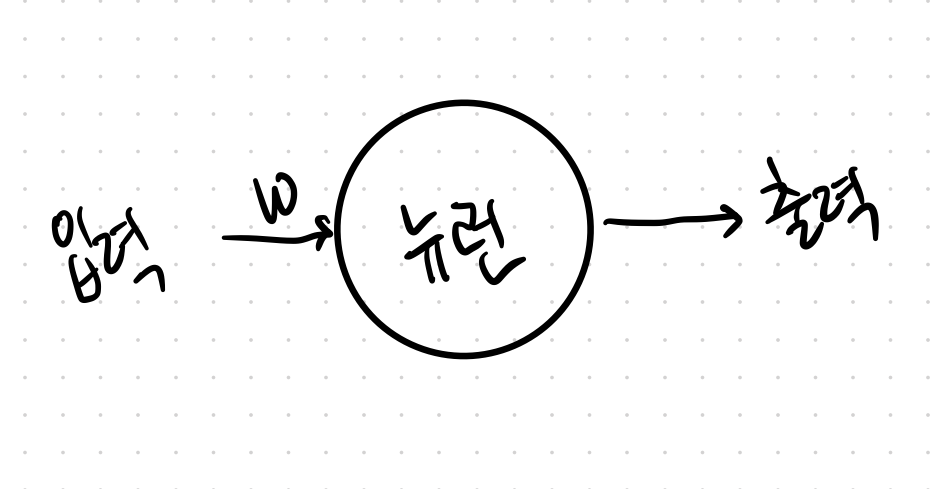 입력
w
뉴런
출력